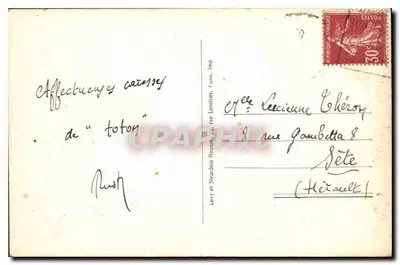 Affectueuses caresses
de "toton"
Levy et Neurdein Réunis, rue Letellier, Paris, Imp.
POSTES
30c
Mlle Lucienne Théron
8 rue Gambetta 8
Sète
(Hérault)
CPARPHIL